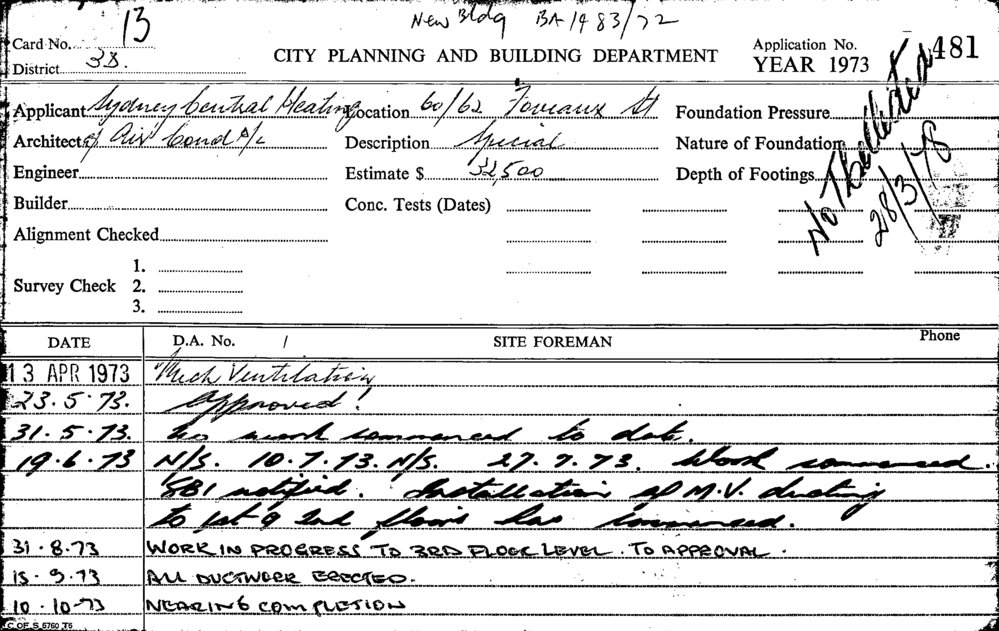 New Bldg BA 1483/72
Card No. 13
CITY PLANNING AND BUILDING DEPARTMENT
Application No. 481
District 38.
YEAR 1973
Applicant Sydney Central Heating Location 60/62 Foveaux St Foundation Pressure
Architect & Air Cond P/L Description Special Nature of Foundation
Engineer Estimate $ 32,500 Depth of Footings
Builder Conc. Tests (Dates)
No
28/3/78
Alignment Checked
1.
Survey Check 2.
3.
DATE D.A. No. / SITE FOREMAN Phone
13 APR 1973 Mech Ventilation
23.5.73. Approved!
31.5.73. No work commenced to date.
19.6.73 N/S. 10.7.73. N/S. 27.7.73. Work commenced.
SBI notified. Installation of M.V. ducting
to 1st & 2nd floors has commenced.
31.8.73 WORK IN PROGRESS TO 3RD FLOOR LEVEL. TO APPROVAL.
15.9.73 ALL DUCTWORK ERECTED.
10.10-73 NEARING COMPLETION
C. OF S. 5760 T6